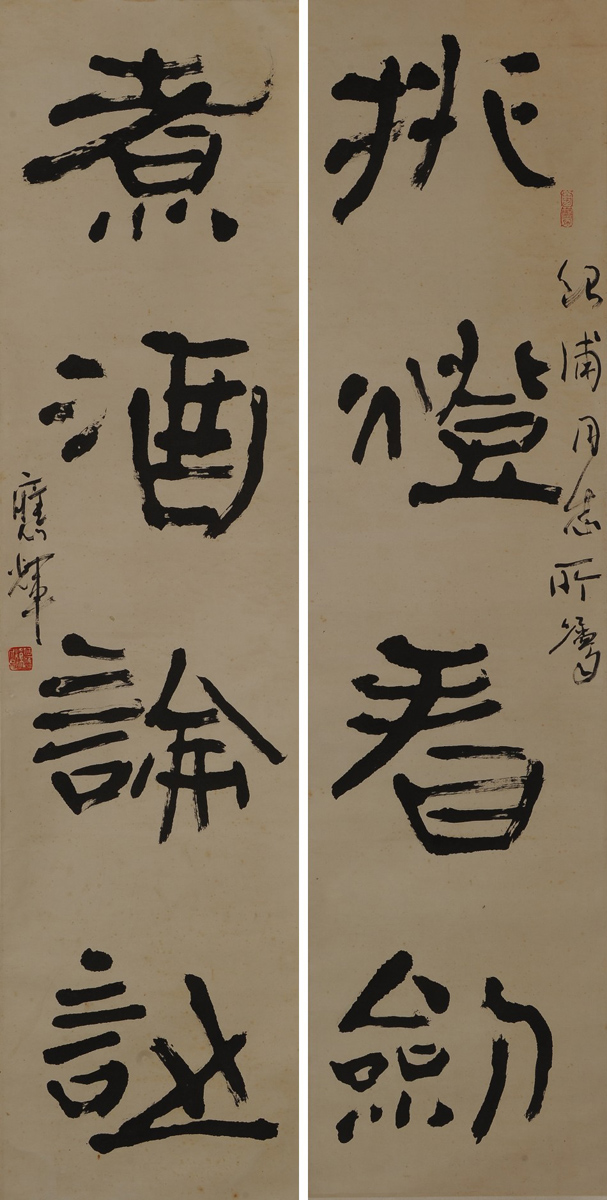 挑燈看劍
紹浦同志所屬
煮酒論詩
應輝